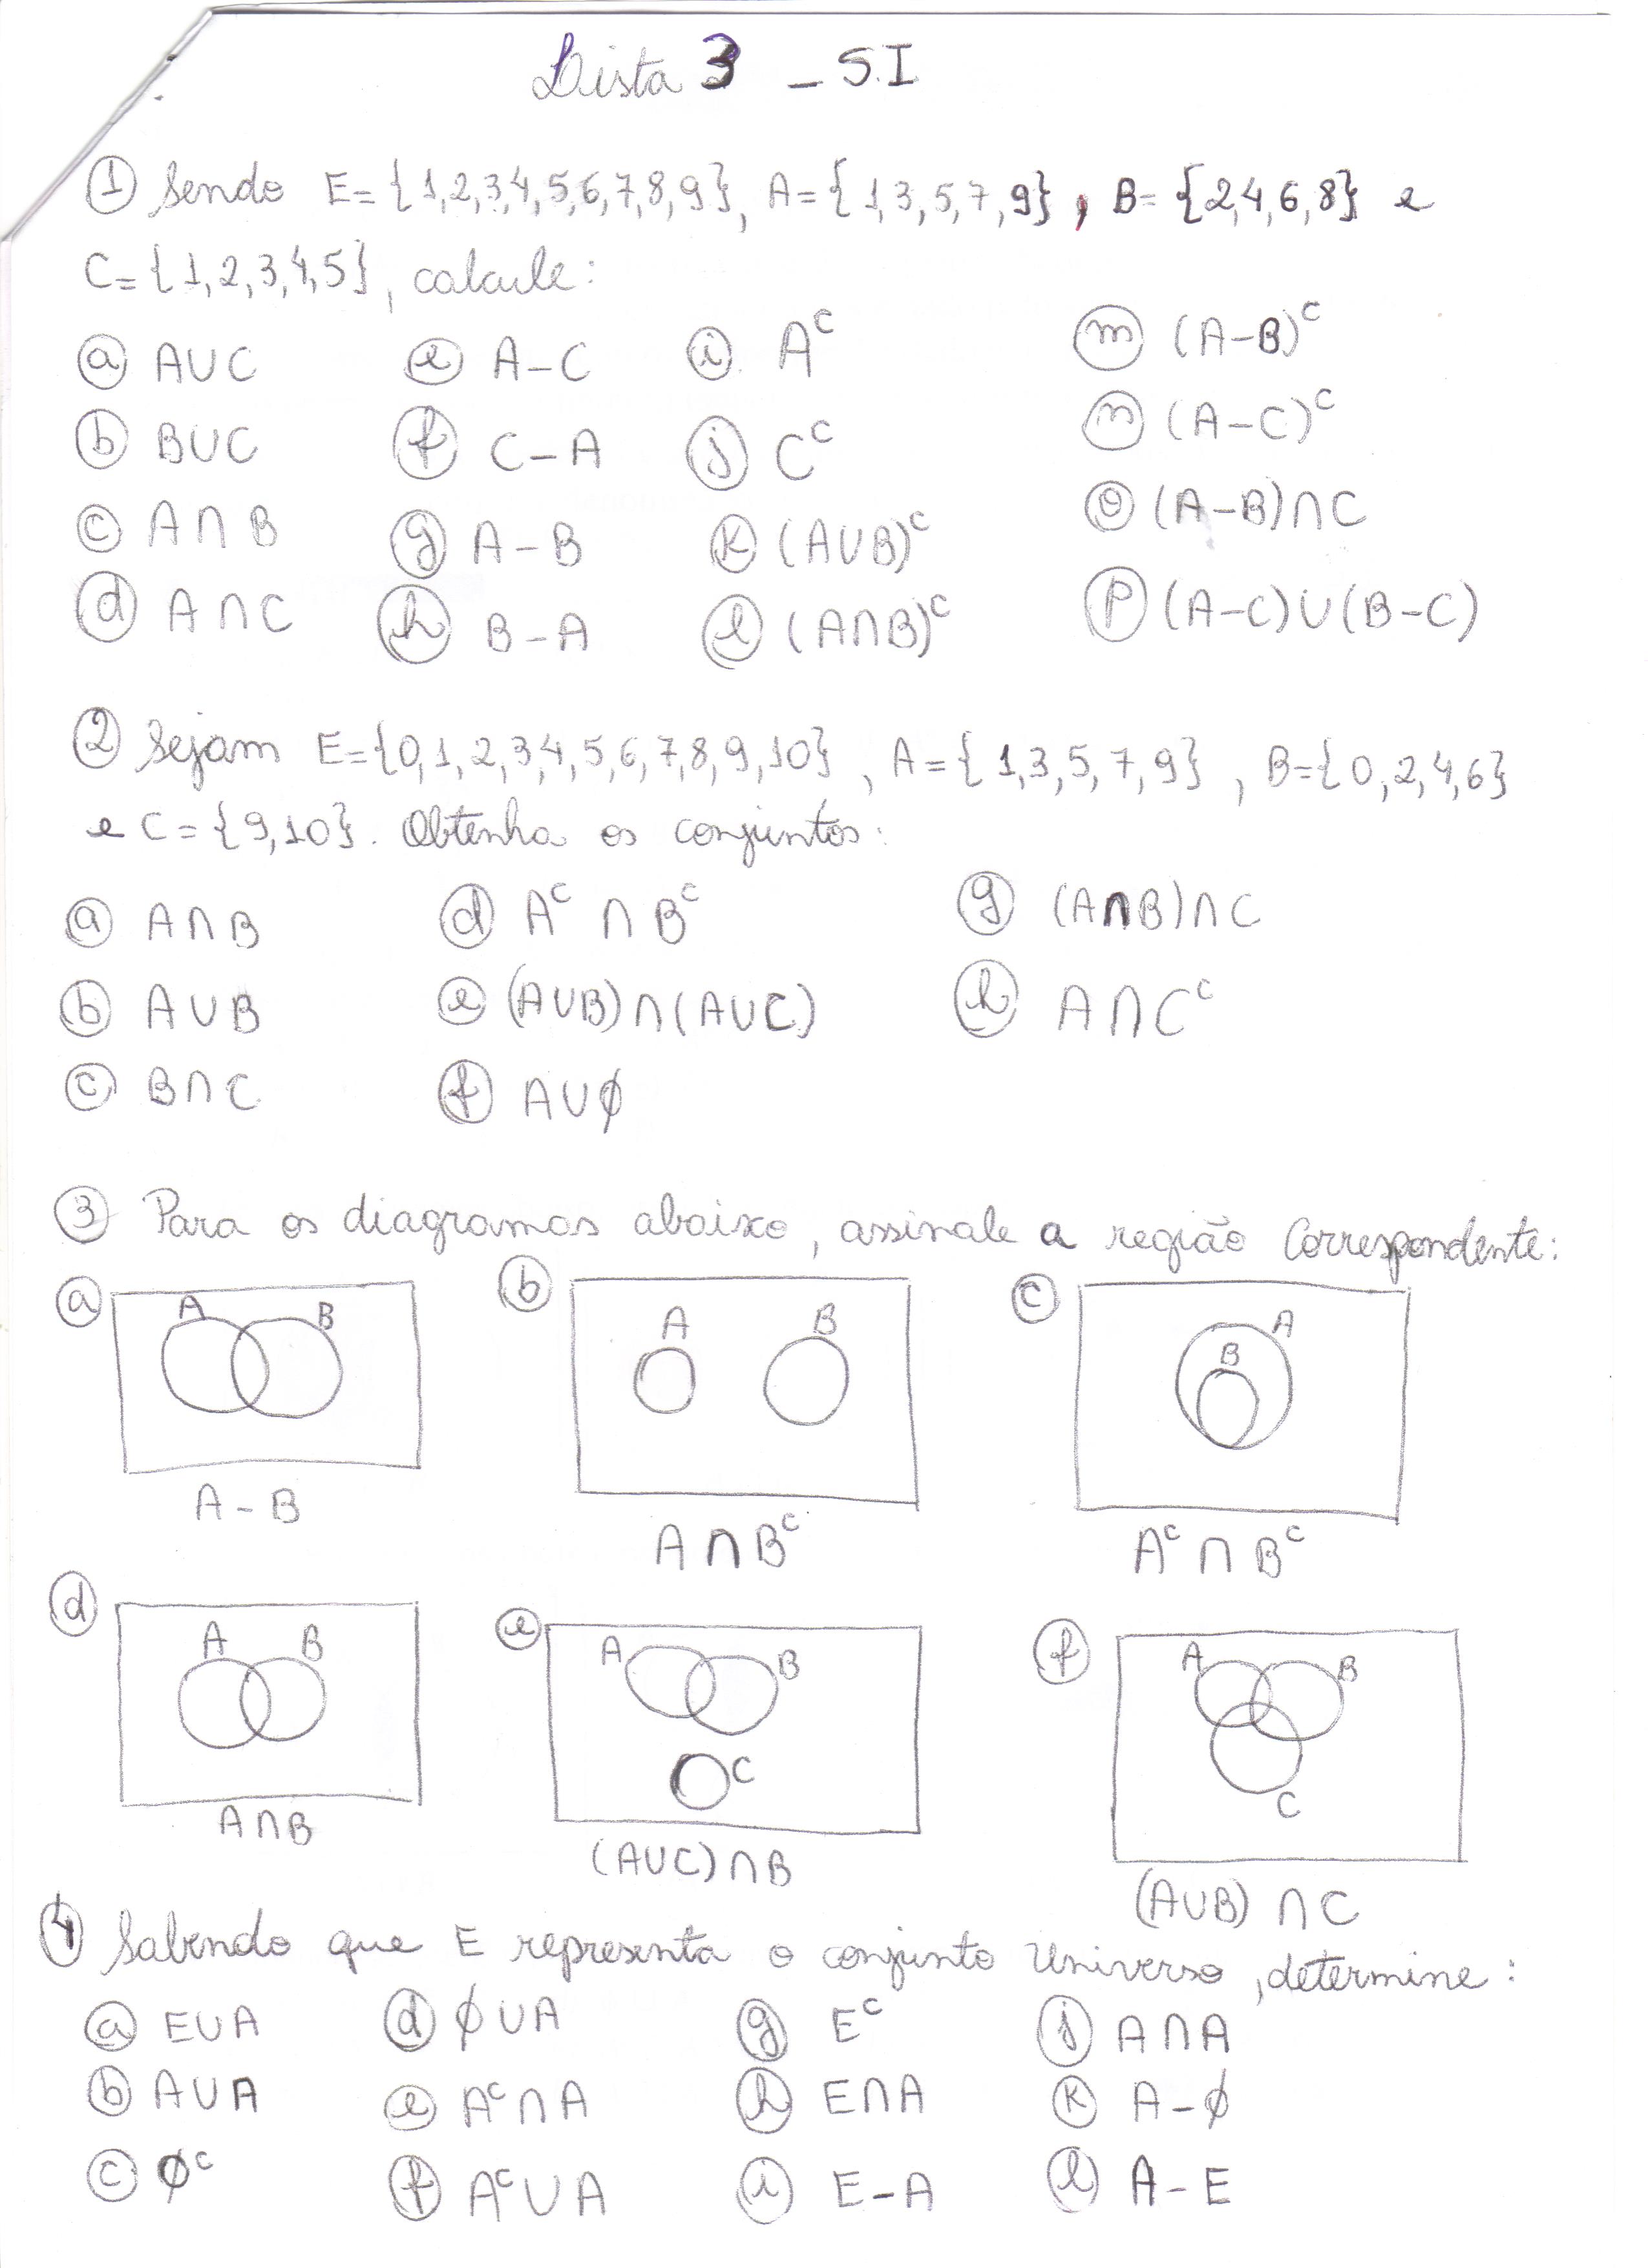 Lista 3 - S.I
① Sendo E={1,2,3,4,5,6,7,8,9}, A={1,3,5,7,9}, B={2,4,6,8} e
C={1,2,3,4,5}, calcule:
ⓐ A∪C ⓔ A-C ⓘ Aᶜ ⓜ (A-B)ᶜ
ⓑ B∪C ⓕ C-A ⓙ Cᶜ ⓝ (A-C)ᶜ
ⓒ A∩B ⓖ A-B ⓚ (A∪B)ᶜ ⓞ (A-B)∩C
ⓓ A∩C ⓗ B-A ⓛ (A∩B)ᶜ ⓟ (A-C)∪(B-C)
② Sejam E={0,1,2,3,4,5,6,7,8,9,10}, A={1,3,5,7,9}, B={0,2,4,6}
e C={9,10}. Obtenha os conjuntos:
ⓐ A∩B ⓓ Aᶜ∩Bᶜ ⓖ (A∩B)∩C
ⓑ A∪B ⓔ (A∪B)∩(A∪C) ⓗ A∩Cᶜ
ⓒ B∩C ⓕ A∪∅
③ Para os diagramas abaixo, assinale a região correspondente:
ⓐ A B ⓑ A B ⓒ A B
A-B A∩Bᶜ Aᶜ∩Bᶜ
ⓓ A B ⓔ A B C ⓕ A B C
A∩B (A∪C)∩B (A∪B)∩C
④ Sabendo que E representa o conjunto Universo, determine:
ⓐ E∪A ⓓ ∅∪A ⓖ Eᶜ ⓙ A∩A
ⓑ A∪A ⓔ Aᶜ∩A ⓗ E∩A ⓚ A-∅
ⓒ ∅ᶜ ⓕ Aᶜ∪A ⓘ E-A ⓛ A-E